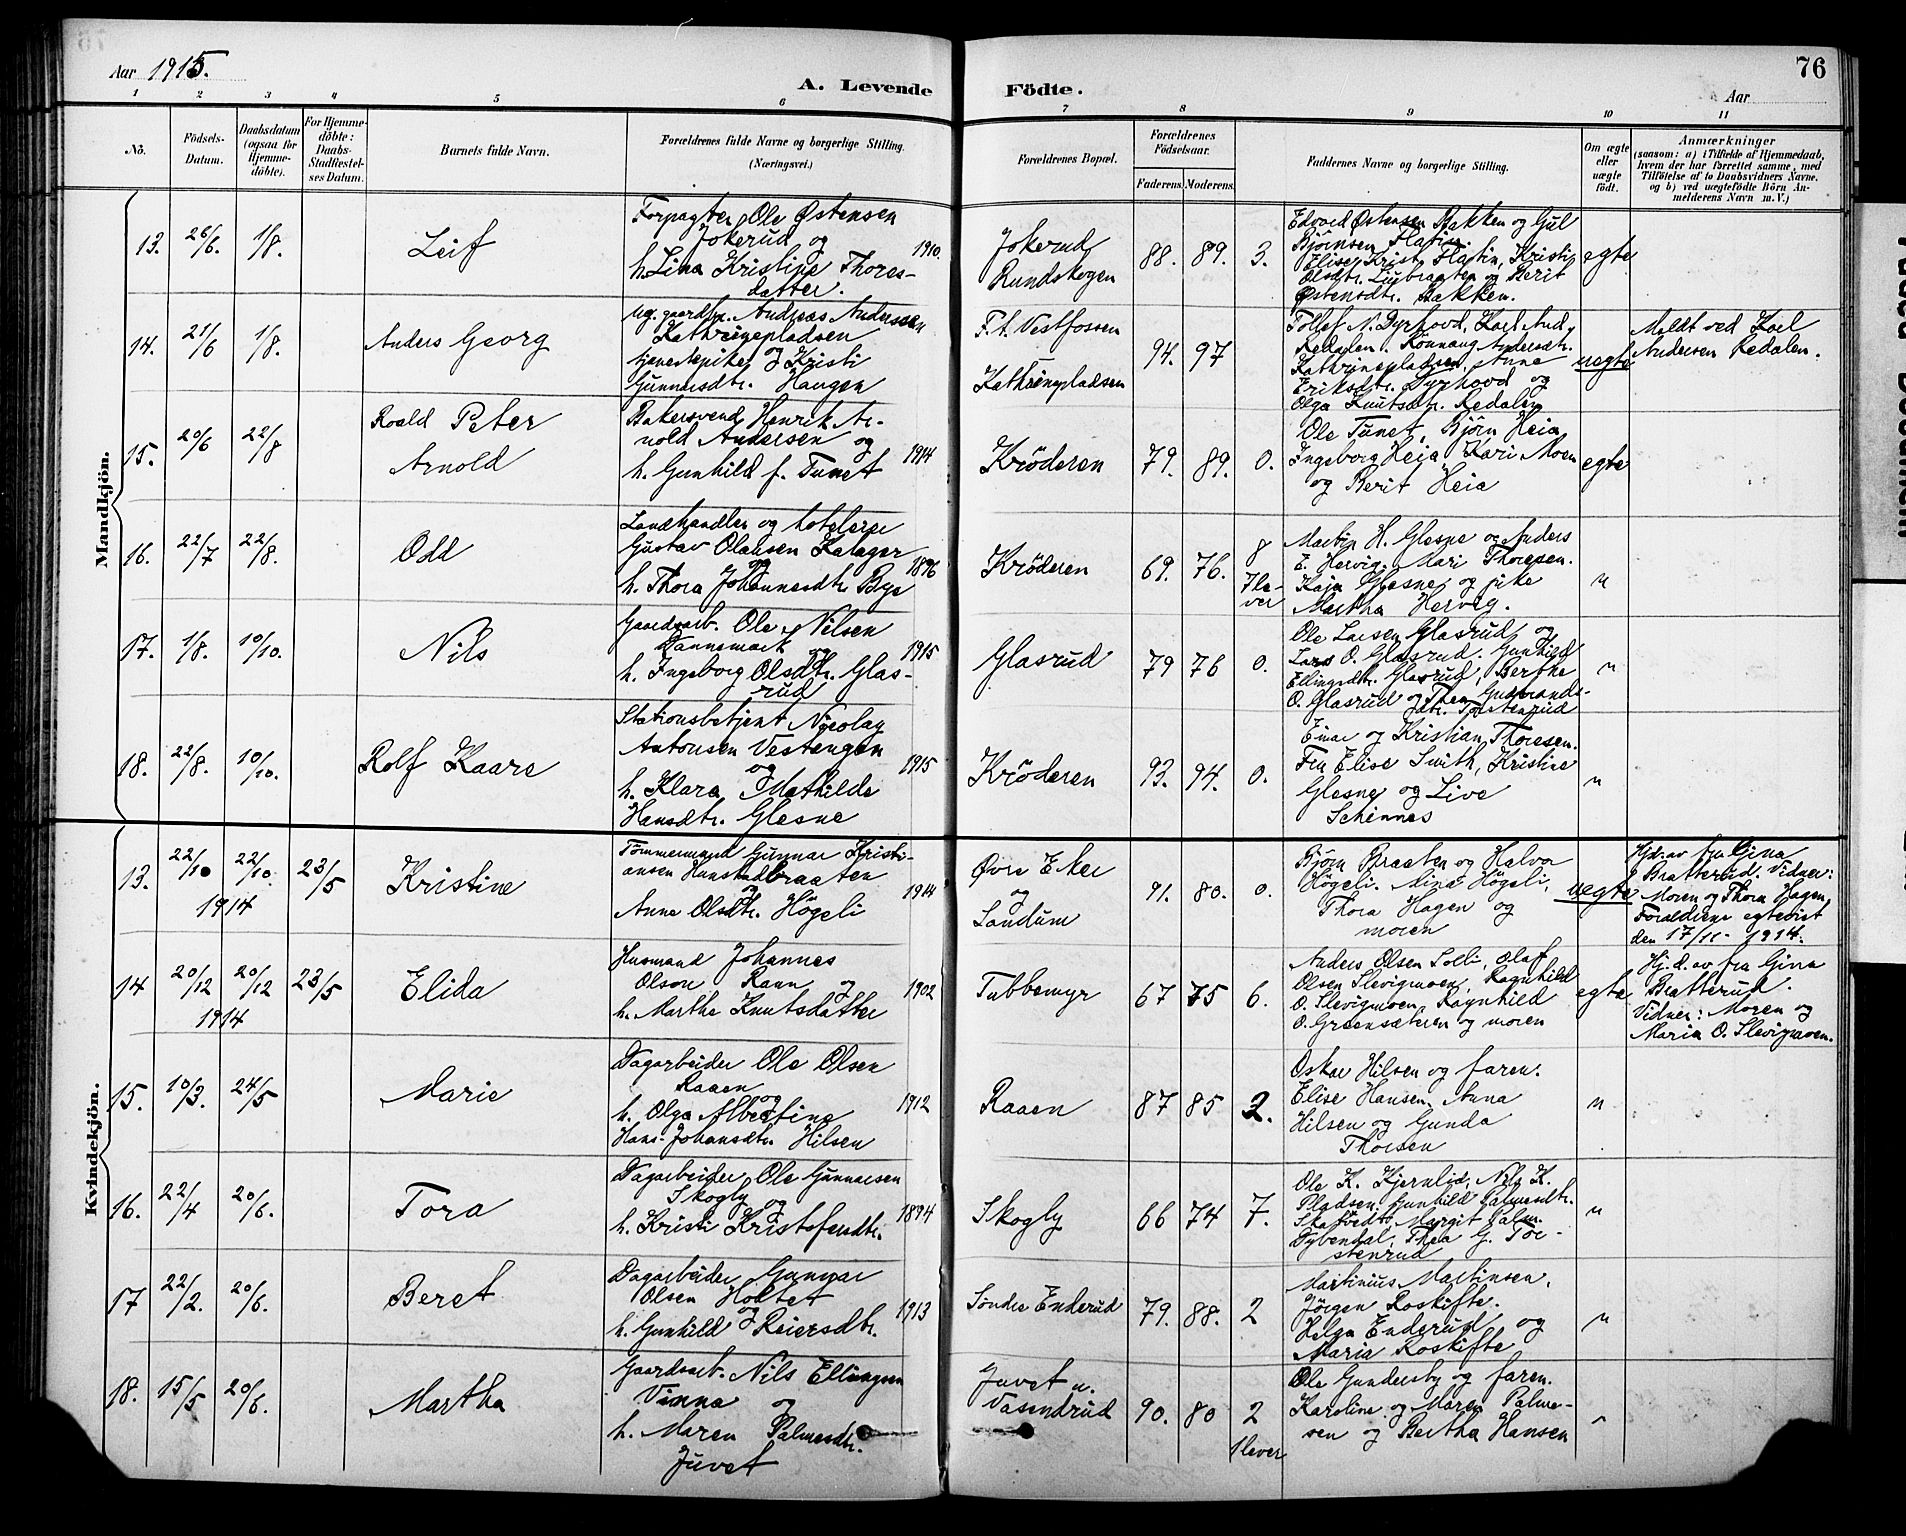 Aar 1915.
A. Levende Födte.
76
Aar
1 2 3 4 5 6 7 8 9 10 11
Nö.
Födsels-Datum.
Daabsdatum (ogsaa för Hjemme-döbte).
For Hjemme-döbte: Daabs-Stadfestel-ses Datum.
Barnets fulde Navn.
Forældrenes fulde Navne og borgerlige Stilling. (Næringsvei.)
Forældrenes Bopæl.
Forældrenes Födselsaar.
Faderens. Moderens.
Faddernes Navne og borgerlige Stilling.
Om ægte eller uægte födt.
Anmærkninger
(saasom: a) i Tilfælde af Hjemmedaab,
hvem der har forrettet samme, med
Tilföielse af to Daabsvidners Navne.
og b) ved uægtefödte Börn An-
melderens Navn m. V.)
Mandkjön.
13. 26/6. 1/8. Leif
Forpagter Ole Østensen
Jokerud og
h. Lina Kristine Thores-
datter.
1910.
Jokerud
Rundskogen
88. 89. 3.
Edvard Østensen Bakken og Gul
Bjørnsen Flatin.
Elise Krist. Flatin, Kristi
Olsdtr. Ljubraaten og Berit
Østensdtr. Bakken.
egte
14. 21/6 1/8. Anders Georg
ug. gaardbr. Andreas Anderssen
Kathrinepladsen
og
tjenestepike Kristi
Gunnarsdtr. Haugen
F. t. Vestfossen
Kathrinepladsen
94. 97
Tollef N. Dyrhovd, Karl And.
Redalen. Rönnaug Andersdtr.
Kathrinepladsen, Anne
Eriksdtr. Dyrhovd og
Olga Knutsdtr. Redalen
uegte
Meldt ved Karl
Andersen Redalen.
15. 20/6 22/8 Roald Peter
Arnold
Bakersvend Henrik Ar-
nold Andersen og
h. Gunhild f. Tunet
1914
Kröderen
79. 89. 0.
Ole Tunet, Björn Heia,
Ingeborg Heia, Kari Moen
og Berit Heia
egte
16. 22/7 22/8. Odd
Landhandler og hoteleier
Gustav Olausen Kalager
og
h. Thora Johannesdtr. Bye
1896
Kröderen
69. 76. 8
7 le-
ver
Martin H. Glesne og Anders
E. Hervig. Mari Thoresen.
Kaja Glesne og pike
Martha Hervig.
"
17. 1/8. 10/10. Nils
Gaardsarb. Ole Nilsen
Dannemark og
h. Ingeborg Olsdtr. Glas-
rud
1915
Glasrud
79 76 0.
Ole Larsen Glasrud og
Lars O. Glasrud. Gunhild
Ellingsdtr. Glasrud, Berthe
O. Glasrud og Thea Gudbrands-
dtr. Torstenrud
"
18. 22/8. 10/10. Rolf Kaare
Stationsbetjent Nicolay
Antonsen Vestengen
og
h. Klara Mathilde
Hansdtr. Glesne
1915
Kröderen
93. 94. 0.
Einar og Kristian Thoresen.
Fru Elise Smith, Kristine
Glesne og Live
Schinnes
"
Kvindekjön.
13. 22/10 22/10. 23/5 Kristine
1914
Tømmermand Gunnar Kristi-
ansen Hunstadbraaten
og
Anne Olsdtr. Högeli
1914
Øvre Eker
og
Sandum
91. 80. 0.
Bjørn Braaten og Halvor
Högeli. Mina Högeli,
Thora Hagen og
moren
uegte
Hjd. av fru Gina
Bratterud. Vidner:
Moren og Thora Hagen
Forældrene egteviet
den 17/11 - 1914.
14 20/12 20/12 23/5 Elida
1914
Husmand Johannes
Olson Ravn og
h. Marthe Knutsdatter
1902
Tubbemyr
67 75 6.
Anders Olsen Solli, Olaf
Olsen Slevigmoen, Ragnhild
O. Slevigmoen, Ragnhild
O. Grøensæteren og moren
egte
Hj. d. av fru Gina
Bratterud.
Vidner: Moren og
Maria O. Slevigmoen.
15. 10/3. 24/5 Marie
Dagarbeider Ole Olsen
Raaen
og
h. Olga Albertine
Hans-Johansdtr. Hilsen
1912
Raaen
87 85 2.
Oskar Hilsen og faren.
Elise Hansen, Anna
Hilsen og Gunda
Thorsen
"
16. 22/4 20/6. Tora
Dagarbeider Ole Gunnarsen
Skogly og
h. Kristi Kristofersdtr.
1894
Skogly
66 74 7.
Ole K. Kjernlid, Nils K.
Pladsen. Gunhild Palmesdtr.
Margit Palm.
Dybendal, Thea G. Tor-
stenrud
"
17 22/2. 20/6. Beret
Dagarbeider Gunnar
Olsen Holtet
og
h. Gunhild Reiersdtr.
1913
Søndre Enderud
79. 88. 2
Martinius Martinsen,
Jörgen Roskifte.
Helga Enderud og
Maria Roskifte
"
18. 15/5 20/6. Martha
Gaardsarb. Nils Ellingsen
Vinna og
h. Maren Palmesdtr.
Juvet
Juvet u.
Vasendrud
90. 80 2
1 lever
Ole Gundersby og faren.
Karoline og Maren Palme-
sen og Bertha Hansen
"